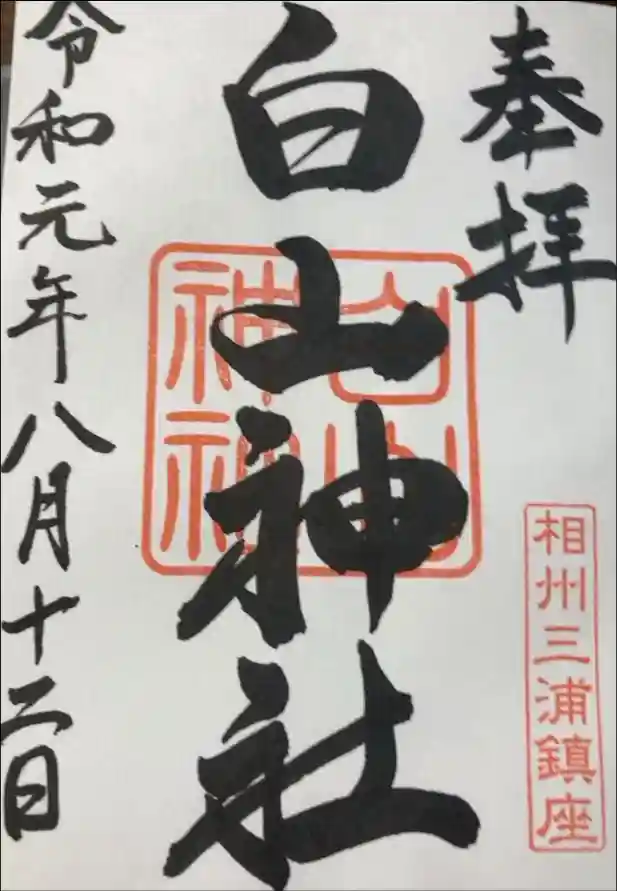 奉拝
相州三浦鎮座
白山神社
白山
神社
令和元年八月十二日